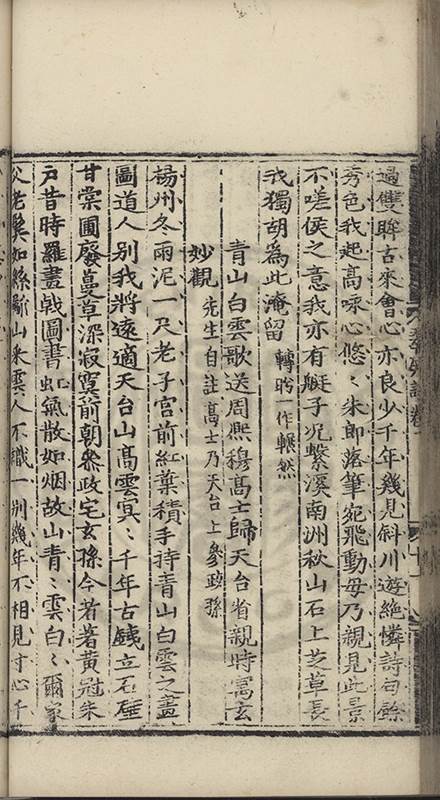 過雙眸古來會心亦良少千年幾見斜川遊絶憐詩句餘
秀色我起高咏心悠〻朱郎落筆宛飛動毋乃親見此景
不嗟侯之意我亦有艇子况繫溪南洲秋山石上芝草長
我獨胡爲此淹留 轉盻一作輾然
青山白雲歌送周熙穆髙士歸天台省親時寓玄
妙觀 先生自註髙士乃天台上參政孫
楊州冬雨泥一尺老子宫前紅葉積手持青山白雲之畫
圖道人别我將遠適天台山髙雲冥〻千年古鐡立石壁
甘棠圃廢蔓草深寂寞前朝叅政宅玄孫今若著黃冠朱
戸昔時羅畫戟圖書虹氣散如烟故山青〻雲白〻爾家
父老鬂如絲歸山來雲人不識一别幾年不相見寸心千